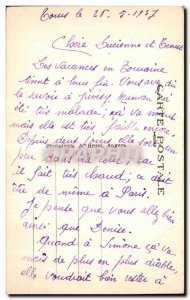 Tours le 25-5-1957
Chère Lucienne et
Les vacances en Touraine
tirent à leur fin. Vous avez dû
le savoir à Juvisy Maman
été très malade; ça va
mais elle est très faible encore.
Depuis deux jours elle
peu dans la cour, car
il fait très chaud; ce doit
être de même à Paris.
Je pense que vous allez bien
ainsi que Denise.
Quand à Simone ça va
de plus en plus diable,
elle voudrait bien rester à
CARTE POSTALE